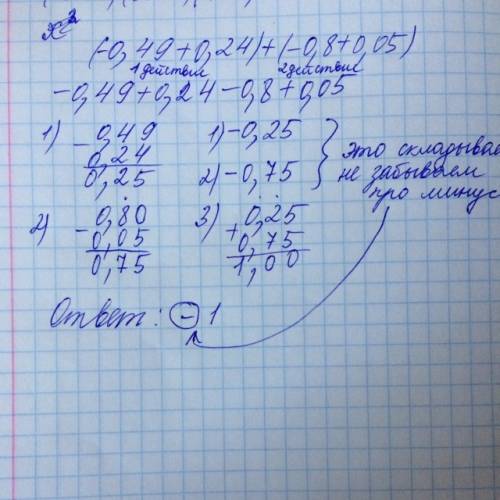 x²
(-0,49+0,24)+(-0,8+0,05)
1действие 2действие
-0,49+0,24-0,8+0,05
1) -0,49
0,24
0,25
1) -0,25
2) -0,75
это складывае
не забываем
про минус
2) -0,80
0,05
0,75
3) 0,25
+
0,75
1,00
Ответ: -1